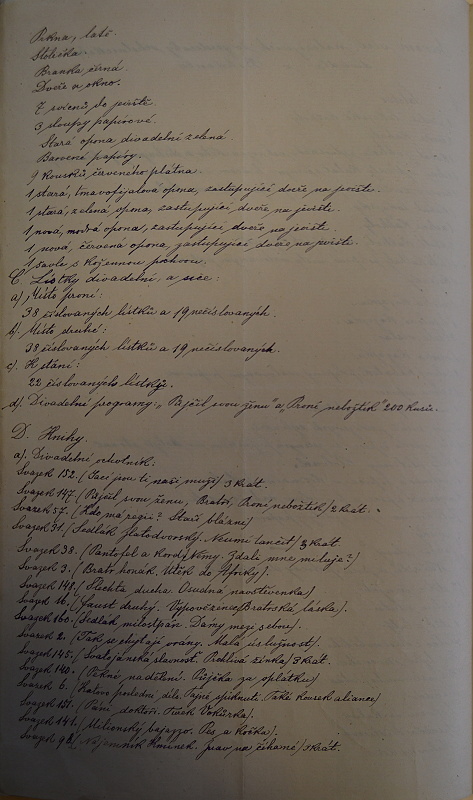 Prkna, latě.
Stolička.
Branka černá.
Dvéře a okno.
7 svícnů do jeviště.
3 sloupy papírové.
Stará opona divadelní zelená.
Barevné papíry.
9 kousků červeného plátna.
1 stará, tmavofijalová opona, zastupující dvéře na jevište.
1 stará, zelená opona, zastupující dvéře na jeviště.
1 nová, modrá opona, zastupující dvéře na jeviště.
1 nová, červená opona, zastupující dvéře na jeviště.
1 šavle s kožennou pochvou.
C. Lístky divadelní, a sice:
a) Místo první:
38 číslovaných lístků a 19 nečíslovaných.
b) Místo druhé:
38 číslovaných lístků a 19 nečíslovaných.
c) K stání:
22 číslovaných lístků.
d) Divadelní programy: „Půjčil svou ženu" a „První nebožtík" 200 kusů.
D. Knihy.
a) Divadelní ochotník:
Svazek 152. (Jací jsou ti naši muži) 3 krát.
Svazek 147. (Půjčil svou ženu, Bratři, První nebožtík) 2 krát.
Svazek 57. (Kdo má regii? Starý blázen)
Svazek 31. (Sedlák zlatodvorský. Neumí tančit) 3 krát
Svazek 38. (Pantofel a kord. Zdali mne miluje?)
Svazek 3. (Bratr honák. Útěk do Afriky).
Svazek 148. (Šlechta ducha. Osudná navštěvenka)
Svazek 16. (Faust druhý. Vypovězenec. Bratrská láska).
Svazek 160. (Sedlák milostpán. Dámy mezi sebou).
Svazek 2. (Tak se chytají vrány. Malá úslužnost).
Svazek 145. (Svatojánská slavnost. Pichlivá žínka) 3 krát.
Svazek 140. (Pěkné nadělení. Půjčka za oplátku)
Svazek 6. (Katovo poslední dílo. Tajné spiknutí. Také kousek aliance)
Svazek 151. (Paní doktor. Fucek Vokurka).
Svazek 141. (Milionský bajazzo. Pes a kočka).
Svazek 92. (Nájemník Kmínek. na číhané) 3 krát.